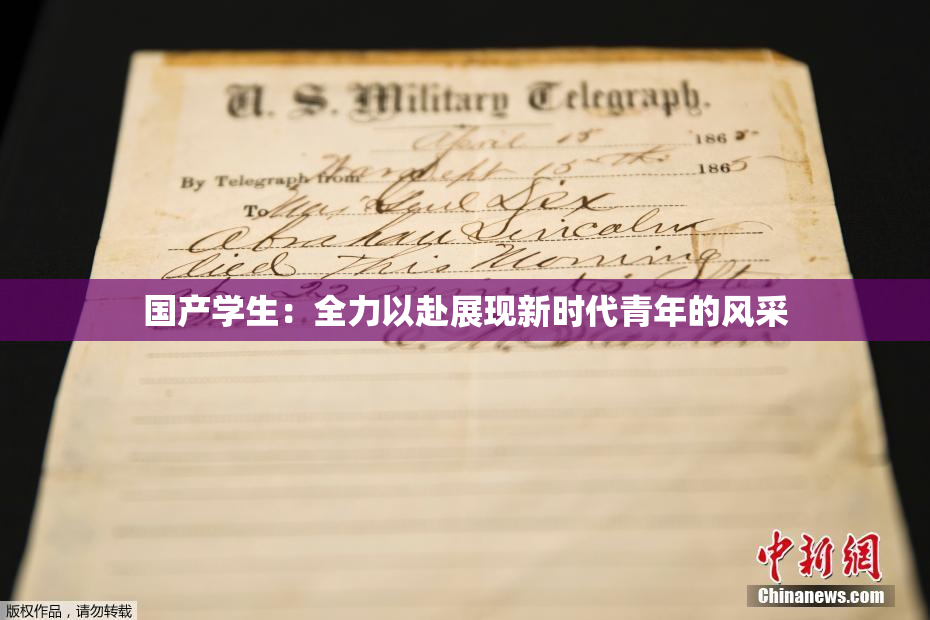 U. S. Military Telegraph.
April 15 1865
By Telegraph from War Dept 15th 1865
To Maj Genl Dix
Abraham Lincoln
died This Morning
at 22 minutes after
国产学生：全力以赴展现新时代青年的风采
中新網
Chinanews.com
版权作品，请勿转载